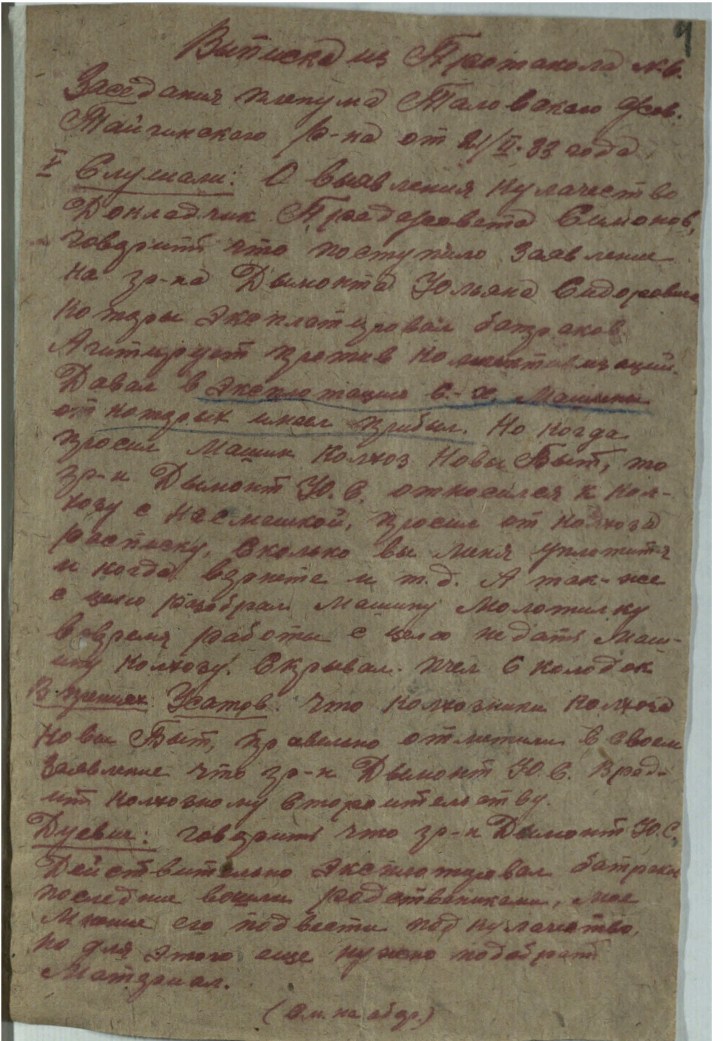 9
Виписка из Протакола №6.
Заседания пленума Таловского с/сов.
Тайгинского р-на от 21/II-33 года.
I Слушали: О выявления кулачество
Докладчик Пред.с/совета Симонов,
говорить что поступило заявление
на гр-на Дымонта Ульяна Сидоровича
которы эксплатировал батраков
Агитирует против коллективизации.
Давал в эксплотацию с.-х. Машины
от которых имел прибыл. Но когда
просил Машин колхоз Новы Быт, то
гр-н Дымонт Ю.С. относился к кол-
хозу с насмешкой, просил от колхоза
расписку, сколько вы меня уплотите
и когда вернете и т.д. А так-же
с целю разобрал Машину Молотилку
вовремя работы с целю недать Маш-
ину колхозу. Скрывал пчел 6 колодок
В прениях Усатов. что колхозники колхоза
Новы Быт, правельно отметили в своем
Заявление что гр-н Дымонт Ю.С. вред-
ит колхозному строительству.
Дуевич: говорить что гр-н Дымонт Ю.С.
Действительно эксплотировал батраков
последние вошли родствениками, мое
Мнение его подвести под кулачество,
но для этого еще нужно подобрать
Материал.
(См. на обор.)